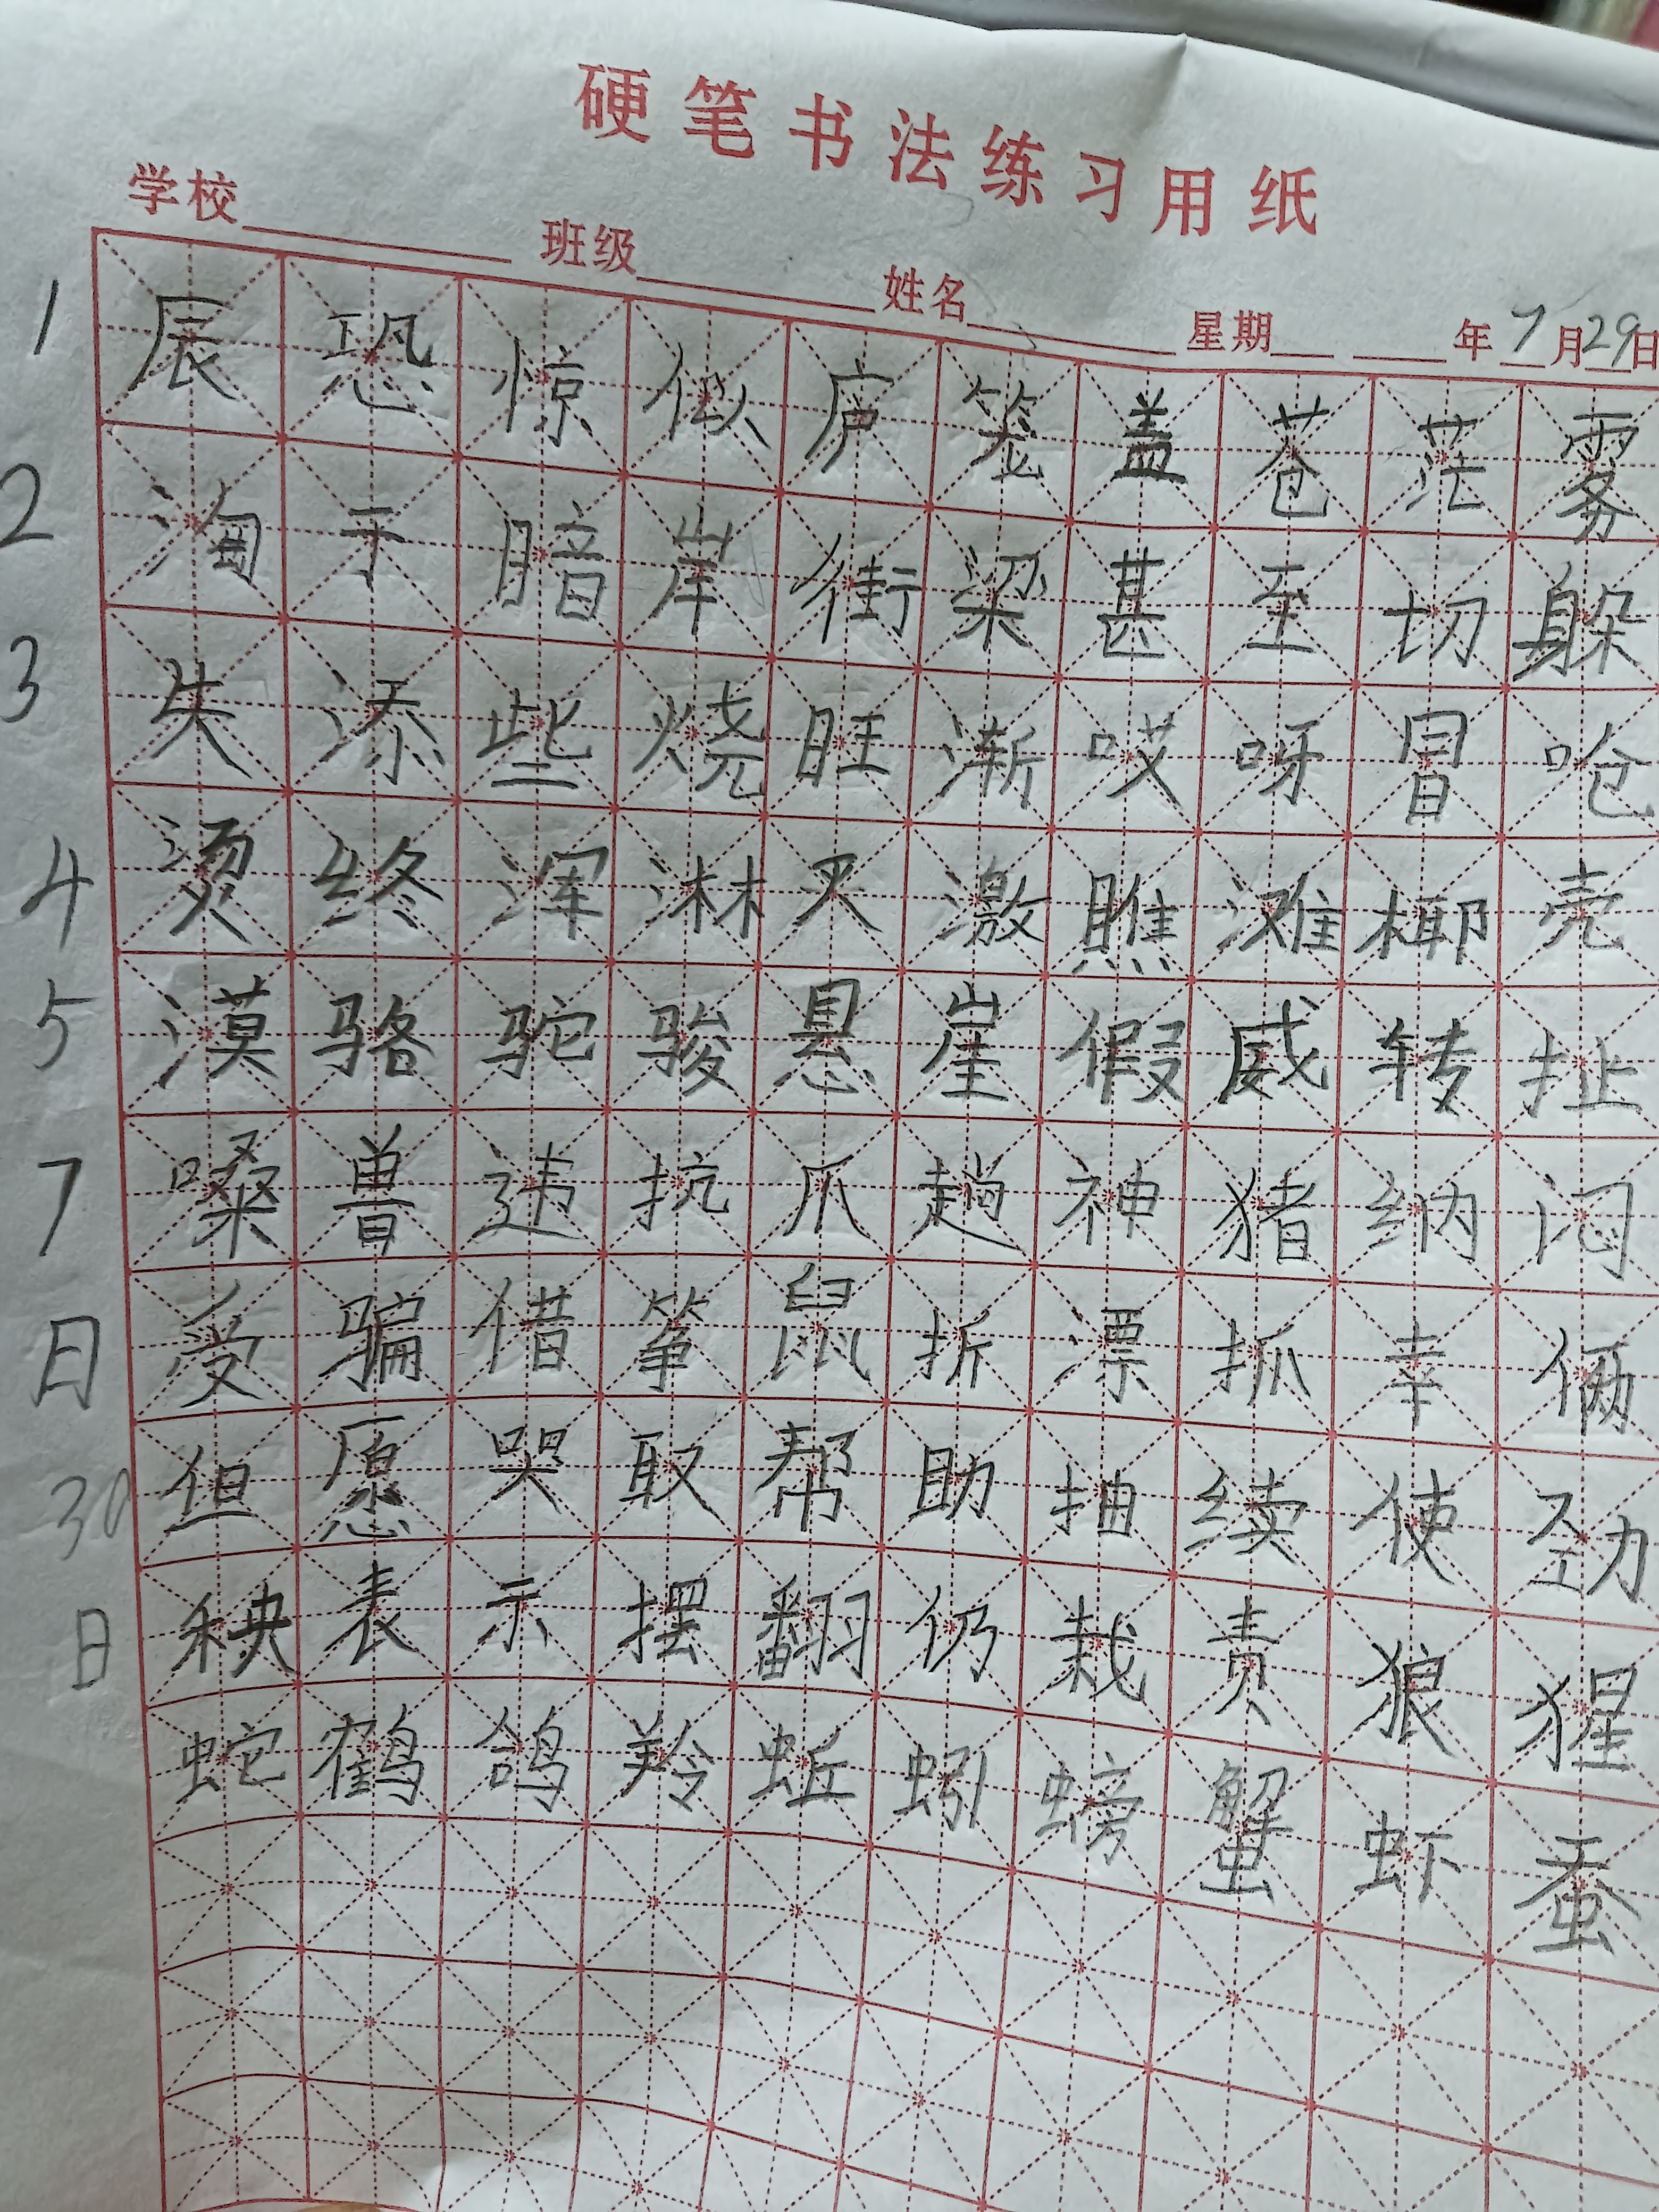 硬笔书法练习用纸
学校 班级 姓名 星期 年7月29日
1 辰恐惊似庐笼盖苍茫雾
2 淘于暗岸街梁甚至切躲
3 失添些烧旺渐哎呀冒呛
4 烫终浑淋灭激瞧滩椰壳
5 漠骆驼骏悬崖假威转扯
7 嗓兽违抗爪趟神猪纳闷
日 受骗借筝鼠折漂抓幸俩
30 但愿哭取帮助抽续使劲
日 秧表示摆翻仍栽责狼猩
蛇鹤鸽羚蚯蚓螃蟹虾蚕